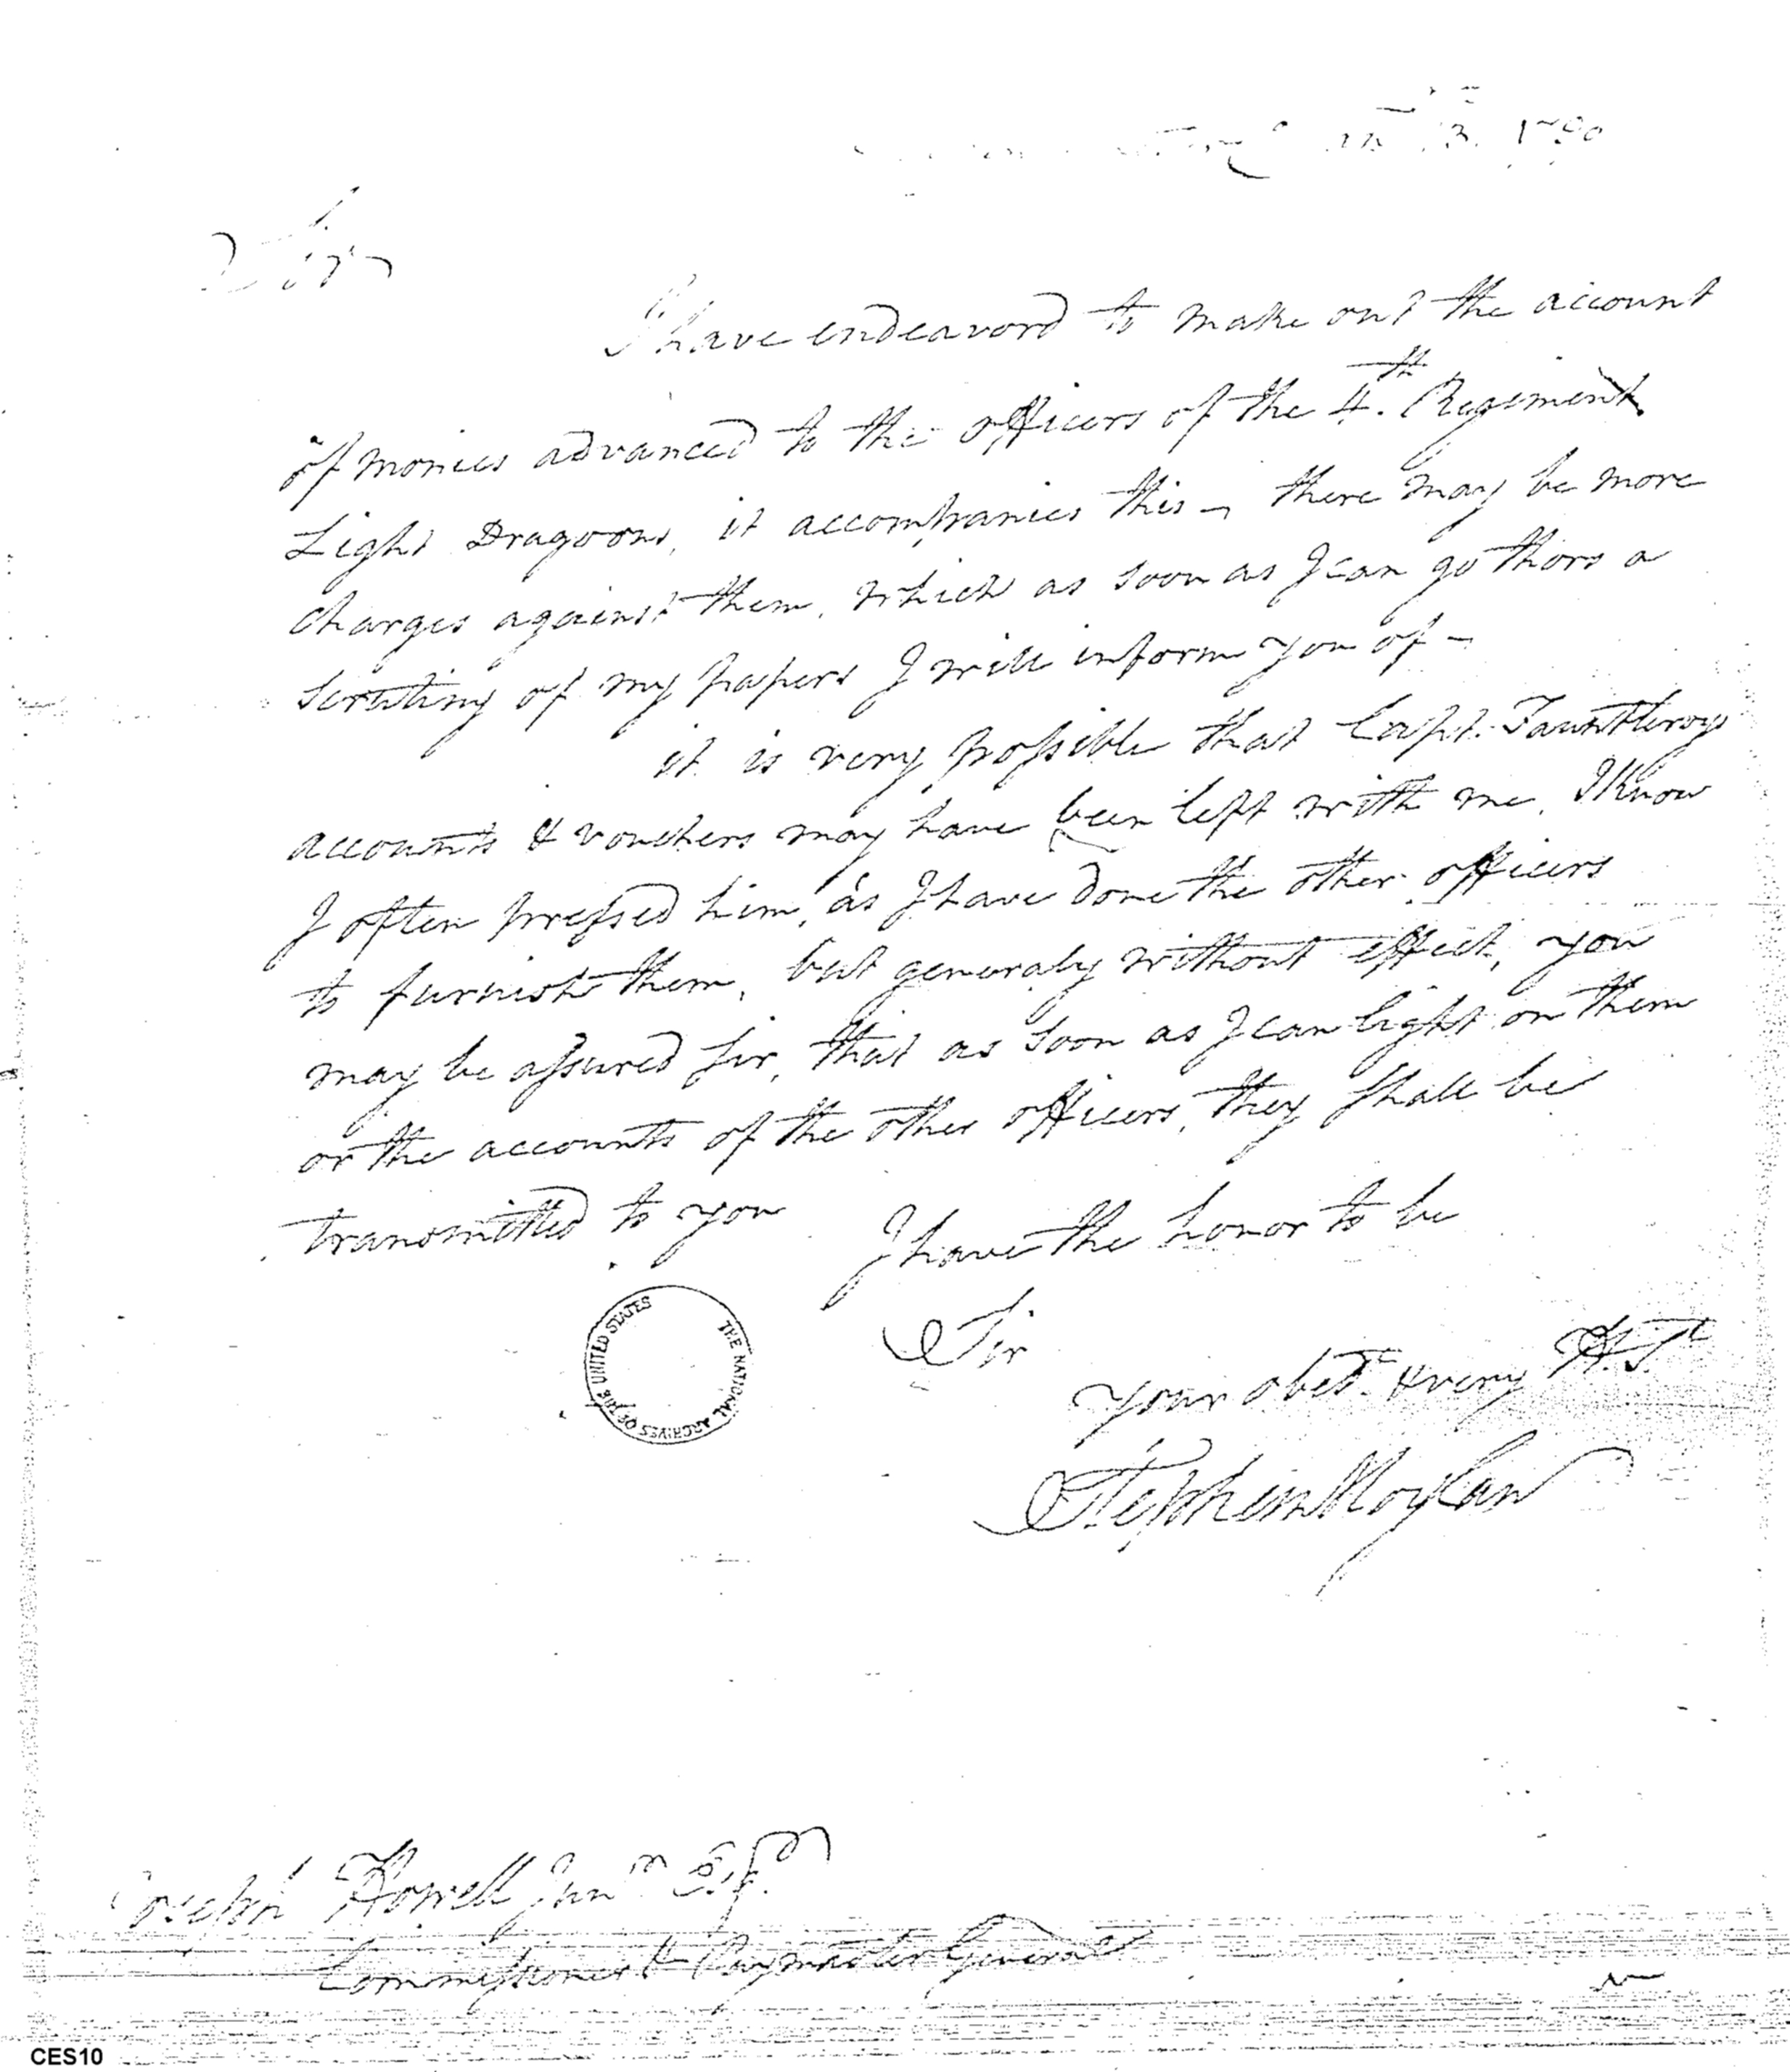 Sir
I have endeavord to make out the account
of monies advanced to the officers of the 4.th Regiment
Light Dragoons, it accompanies this – there may be more
charges against them, which as soon as I can go thoro a
scrutiny of my papers I will inform you of –
it is very possible that Capt. Fauntleroys
accounts & vouchers may have been left with me, I know
I often pressed him, as I have done the other officers
to furnish them, but generaly without effect, you
may be assured sir, that as soon as I can light on them
or the accounts of the other officers, they shall be
transmitted to you I have the honor to be
Sir
your obed.t & very H.St
Stephen Moylan
THE NATIONAL ARCHIVES OF THE UNITED STATES
Joseph Howell Jun.r Esq.r
Commissioner & Paymaster General
CES10